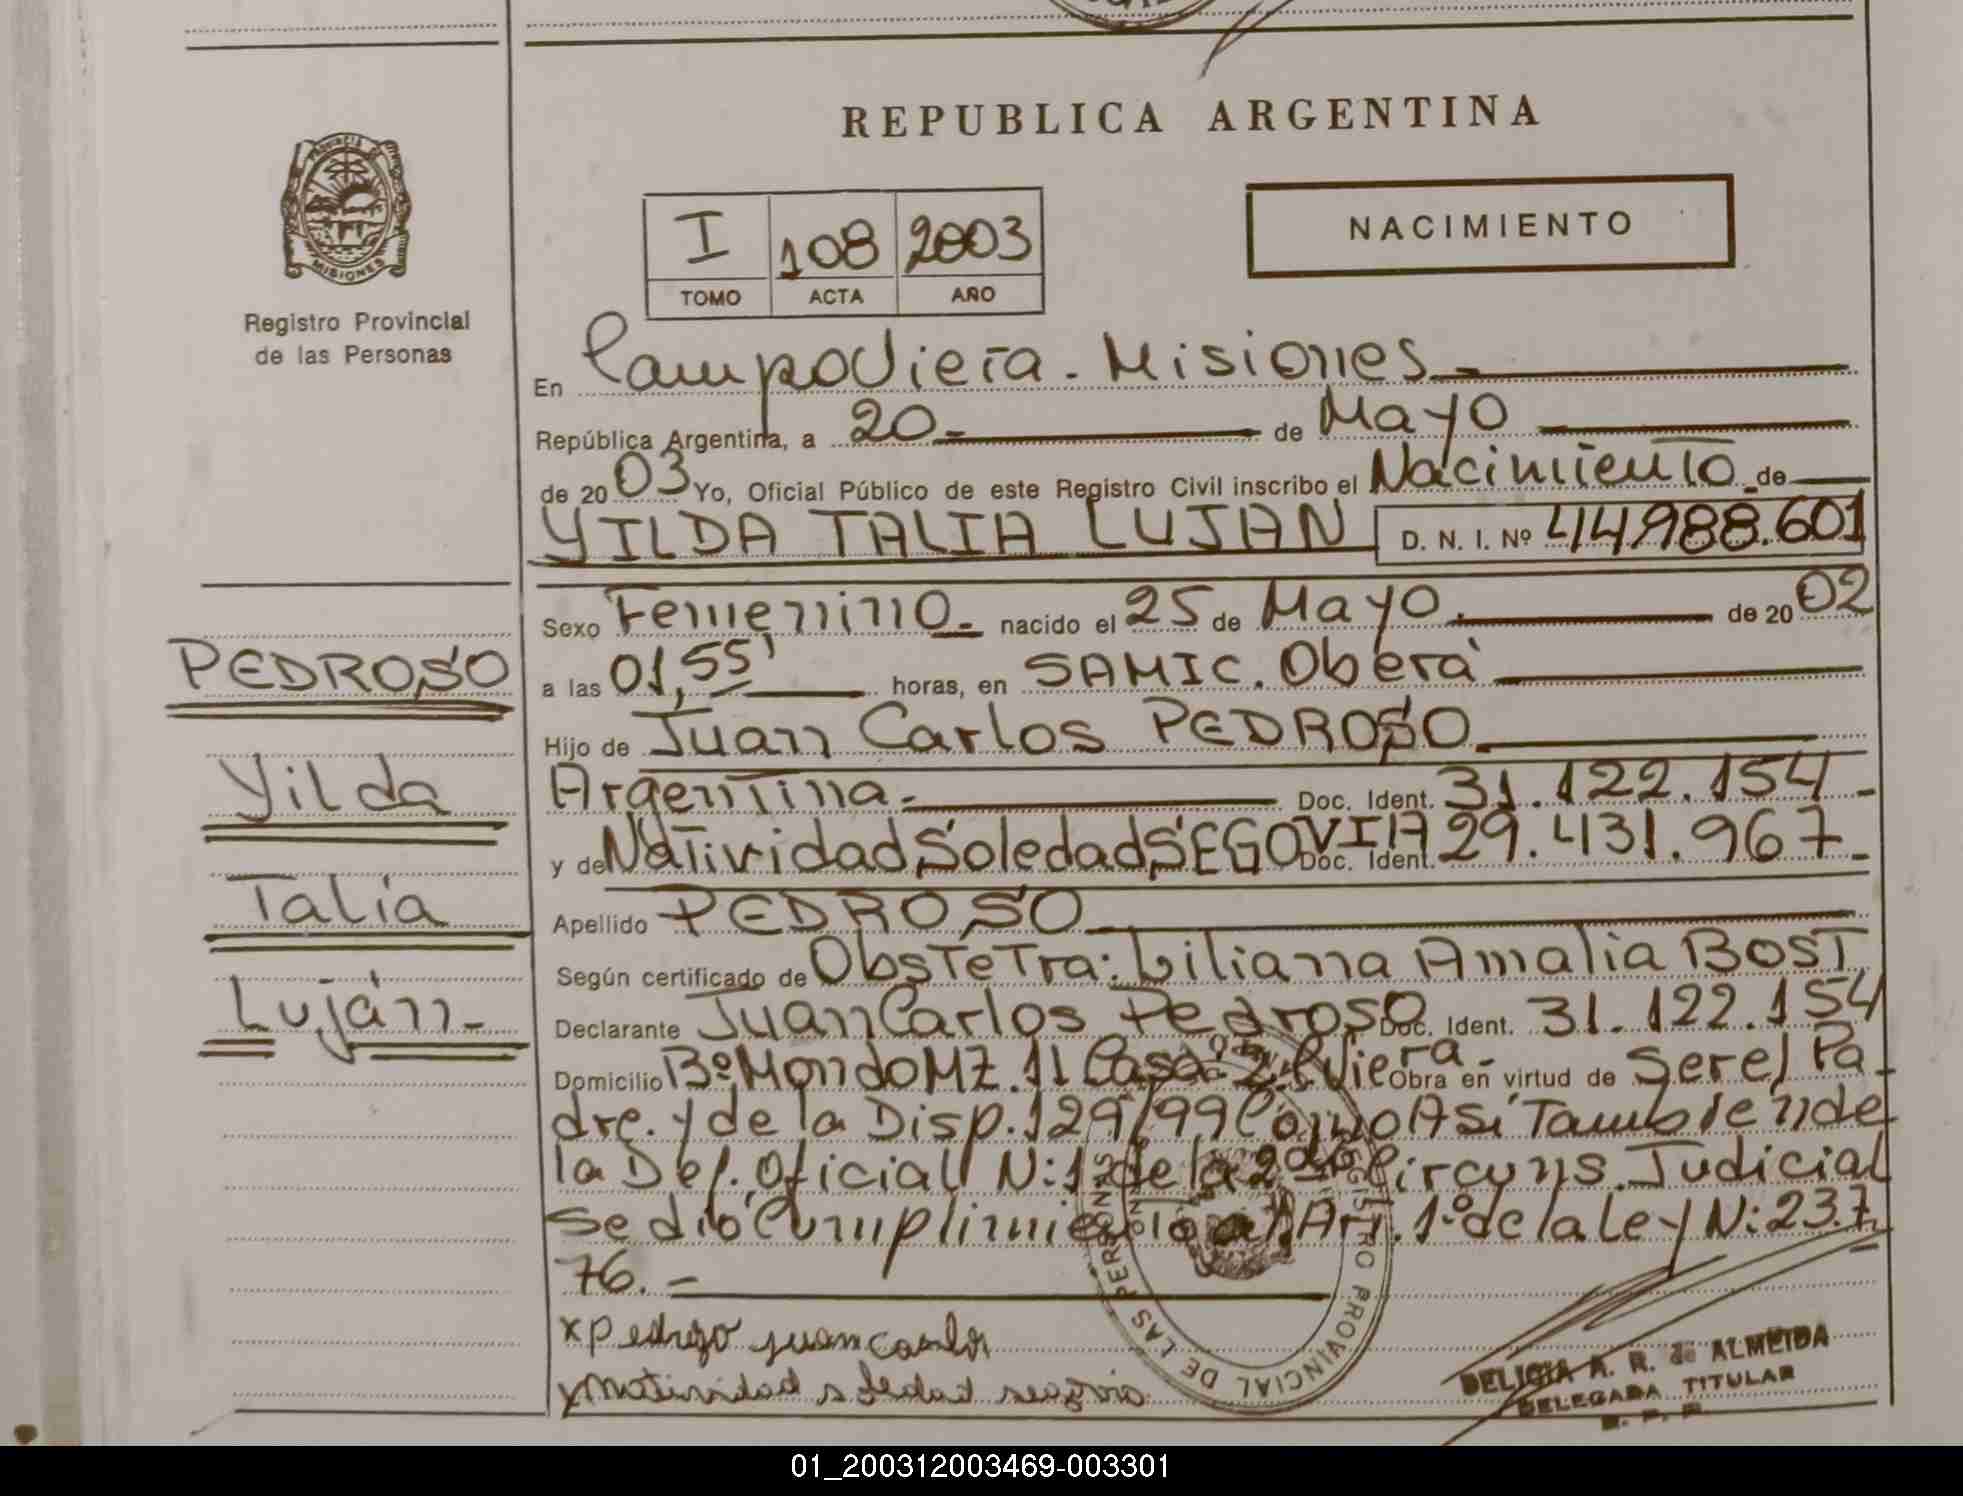 REPUBLICA ARGENTINA
PROVINCIA DE
MISIONES
Registro Provincial
de las Personas
I 108 2003
TOMO ACTA AÑO
NACIMIENTO
En CampoViera. Misiones
República Argentina, a 20 de Mayo
de 2003 Yo, Oficial Público de este Registro Civil inscribo el Nacimiento de
YILDA TALIA LUJAN D. N. I. Nº 44.988.601
Sexo Femenino. nacido el 25 de Mayo. de 2002
a las 01,55' horas, en SAMIC. Oberá
Hijo de Juan Carlos PEDROSO
Argentina. Doc. Ident. 31.122.154
y de Natividad Soledad SEGOVIA Doc. Ident. 29.431.967
Apellido PEDROSO
Según certificado de Obstetra: Liliana Amalia BOST
Declarante Juan Carlos Pedroso Doc. Ident. 31.122.154
Domicilio Bº Mondo MZ. 11 Casa: 2. C. Viera. Obra en virtud de Ser el Pa
dre. y de la Disp. 129/99 Como Así También de
la Def. Oficial N: 1 de la 2da Circuns. Judicial
Se dió Cumplimiento al Art. 1º de la Ley N: 23.7
76. -
PEDROSO
Yilda
Talía
Luján
x pedrozo juan carlos
x natividad soledad segovia
REGISTRO PROVINCIAL DE LAS PERSONAS
DELICIA A. R. de ALMEIDA
DELEGADA TITULAR
R. P. P.
01_200312003469-003301